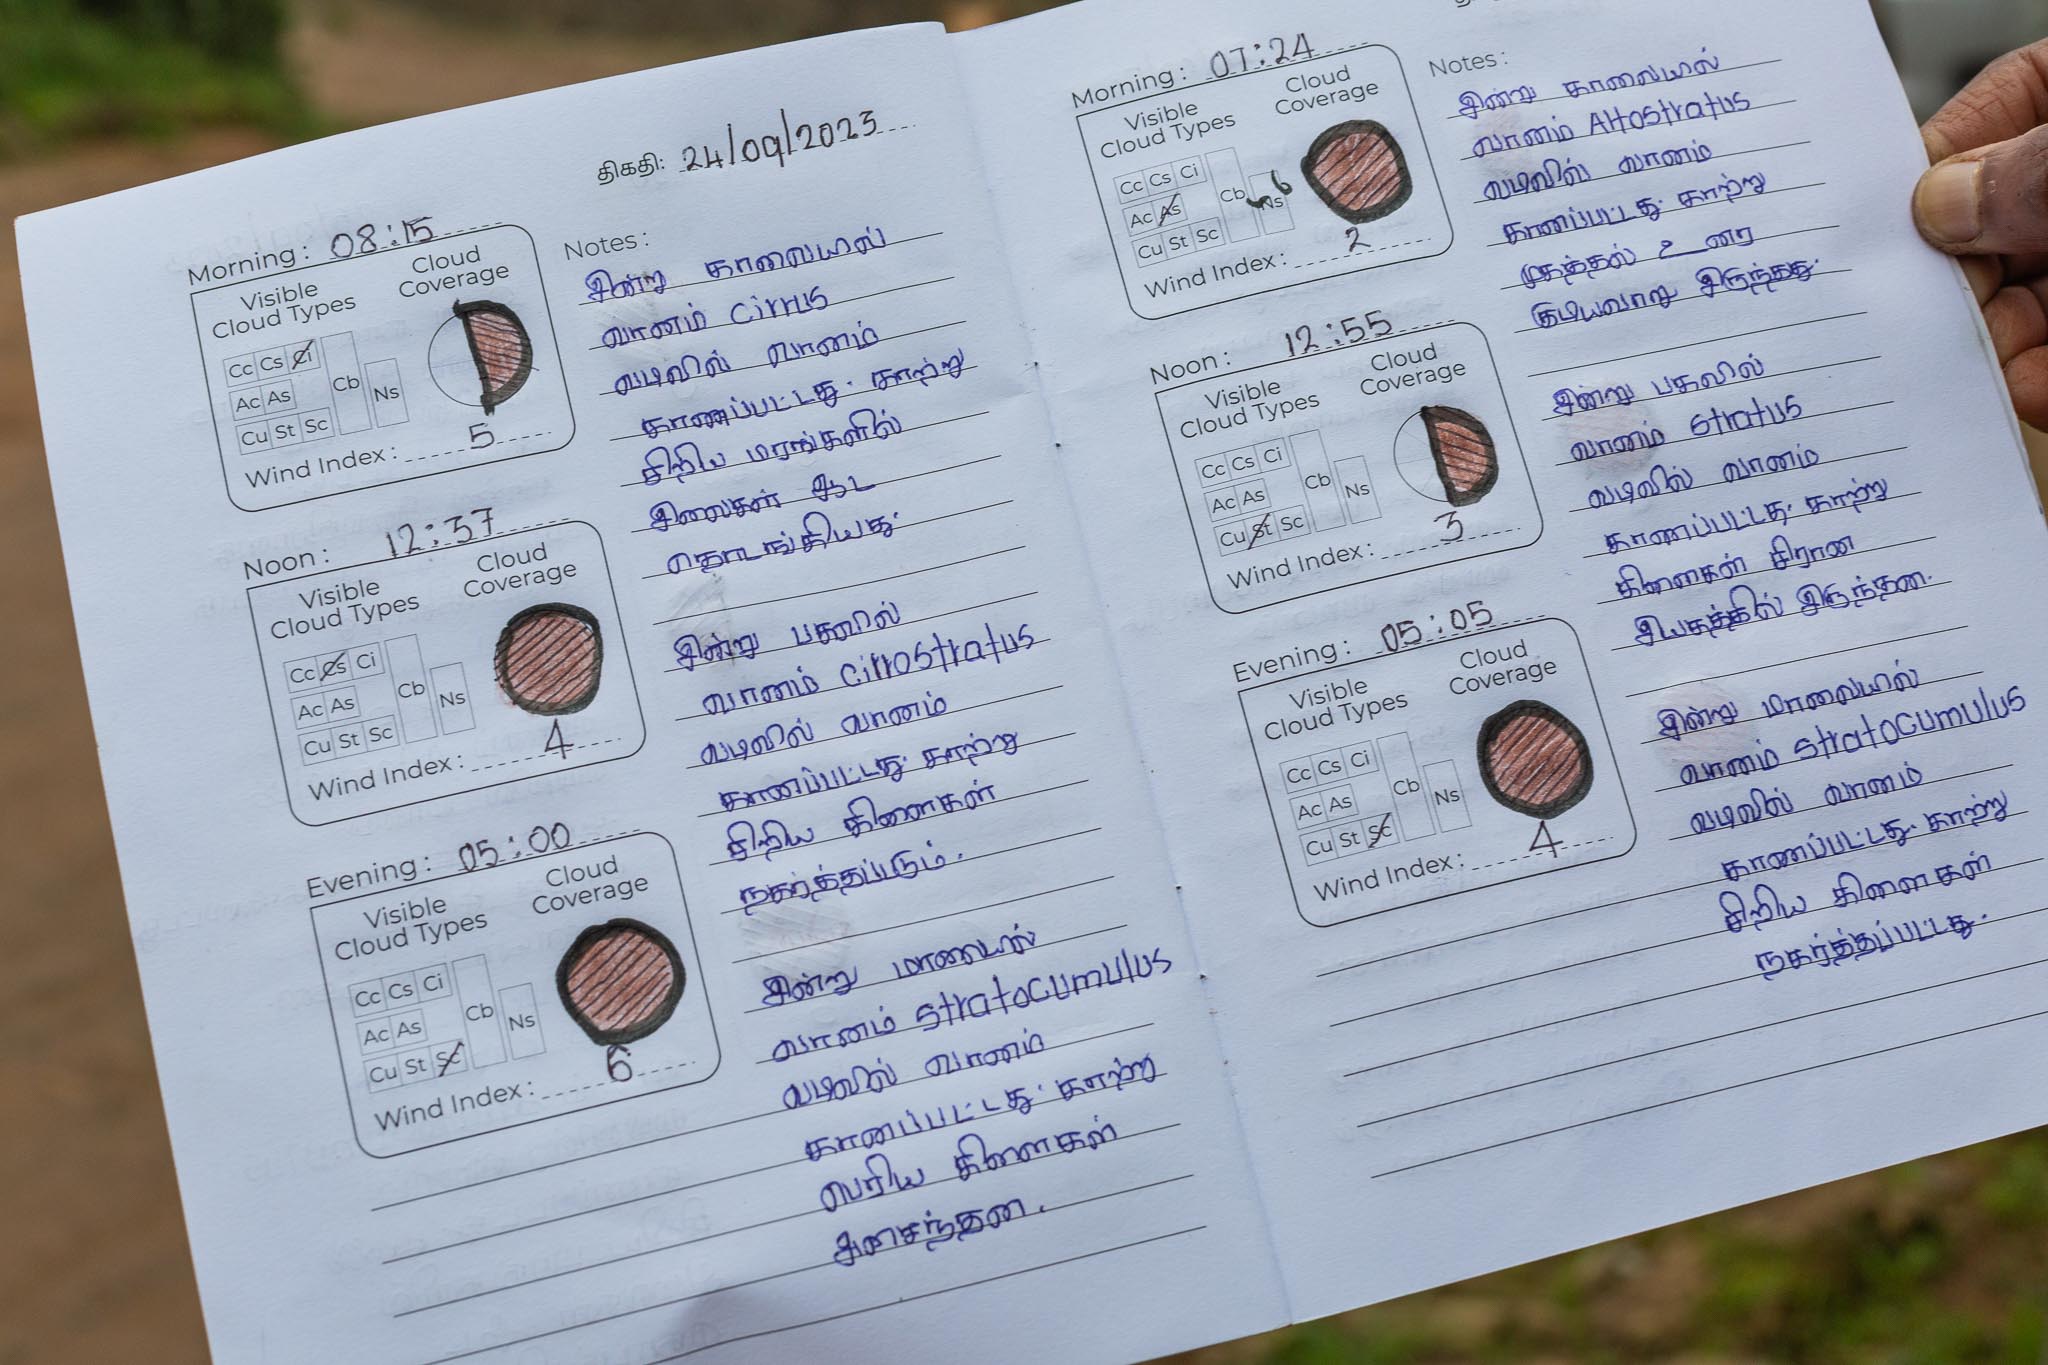 திகதி: 24/09/2023
Morning: 08:15
Visible
Cloud Types
Cloud
Coverage
Cc Cs Ci
Ac As
Cu St Sc
Cb
Ns
Wind Index: 5
Notes:
இன்று காலையில்
வானம் Cirrus
வடிவில் வானம்
காணப்பட்டது. காற்று
சிறிய மரங்களில்
இலைகள் ஆட
தொடங்கியது.
Noon: 12:37
Visible
Cloud Types
Cloud
Coverage
Cc Cs Ci
Ac As
Cu St Sc
Cb
Ns
Wind Index: 4
இன்று பகலில்
வானம் Cirrostratus
வடிவில் வானம்
காணப்பட்டது. காற்று
சிறிய கிளைகள்
நகர்த்தப்படும்.
Evening: 05:00
Visible
Cloud Types
Cloud
Coverage
Cc Cs Ci
Ac As
Cu St Sc
Cb
Ns
Wind Index: 6
இன்று மாலையில்
வானம் Stratocumulus
வடிவில் வானம்
காணப்பட்டது. காற்று
பெரிய கிளைகள்
அசைந்தன.
Morning: 07:24
Visible
Cloud Types
Cloud
Coverage
Cc Cs Ci
Ac As
Cu St Sc
Cb
Ns
Wind Index: 2
Notes:
இன்று காலையில்
வானம் Altostratus
வடிவில் வானம்
காணப்பட்டது. காற்று
முகத்தில் உணர
கூடியவாறு இருந்தது.
Noon: 12:55
Visible
Cloud Types
Cloud
Coverage
Cc Cs Ci
Ac As
Cu St Sc
Cb
Ns
Wind Index: 3
இன்று பகலில்
வானம் Stratus
வடிவில் வானம்
காணப்பட்டது. காற்று
கிளைகள் சீரான
இயக்கத்தில் இருந்தன.
Evening: 05:05
Visible
Cloud Types
Cloud
Coverage
Cc Cs Ci
Ac As
Cu St Sc
Cb
Ns
Wind Index: 4
இன்று மாலையில்
வானம் Stratocumulus
வடிவில் வானம்
காணப்பட்டது. காற்று
சிறிய கிளைகள்
நகர்த்தப்பட்டது.